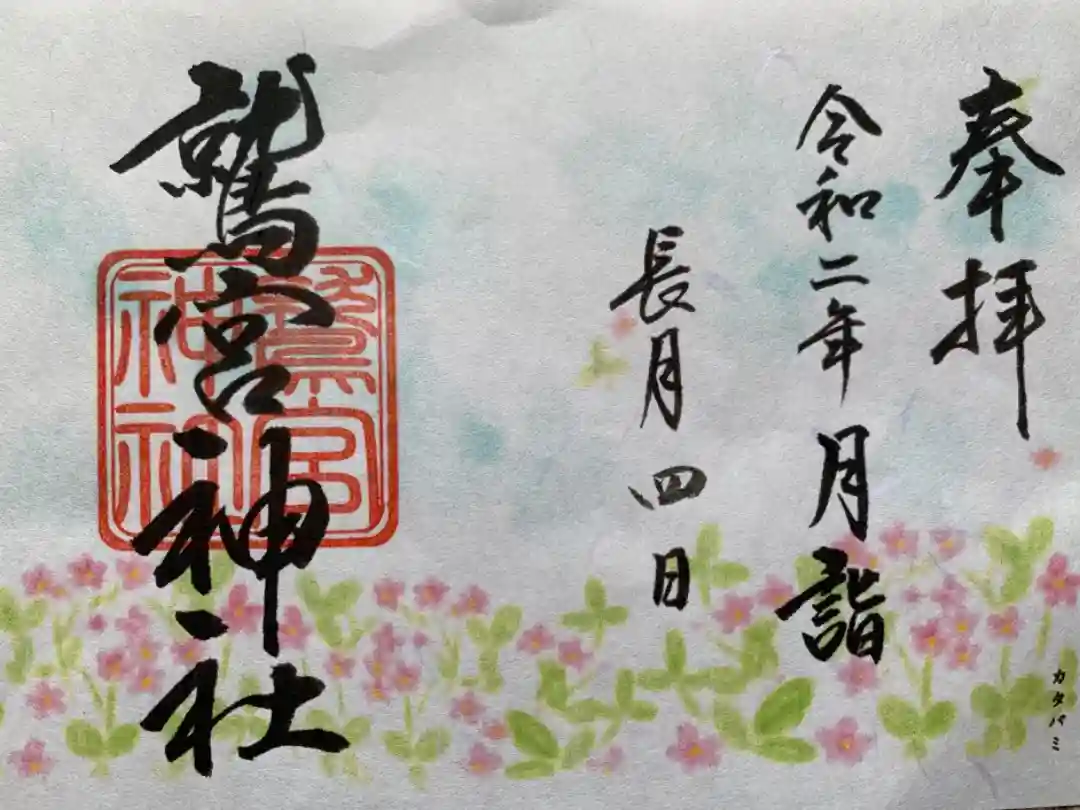 奉拝
令和二年月詣
長月四日
鷲宮神社
鷲宮
神社
カタバミ